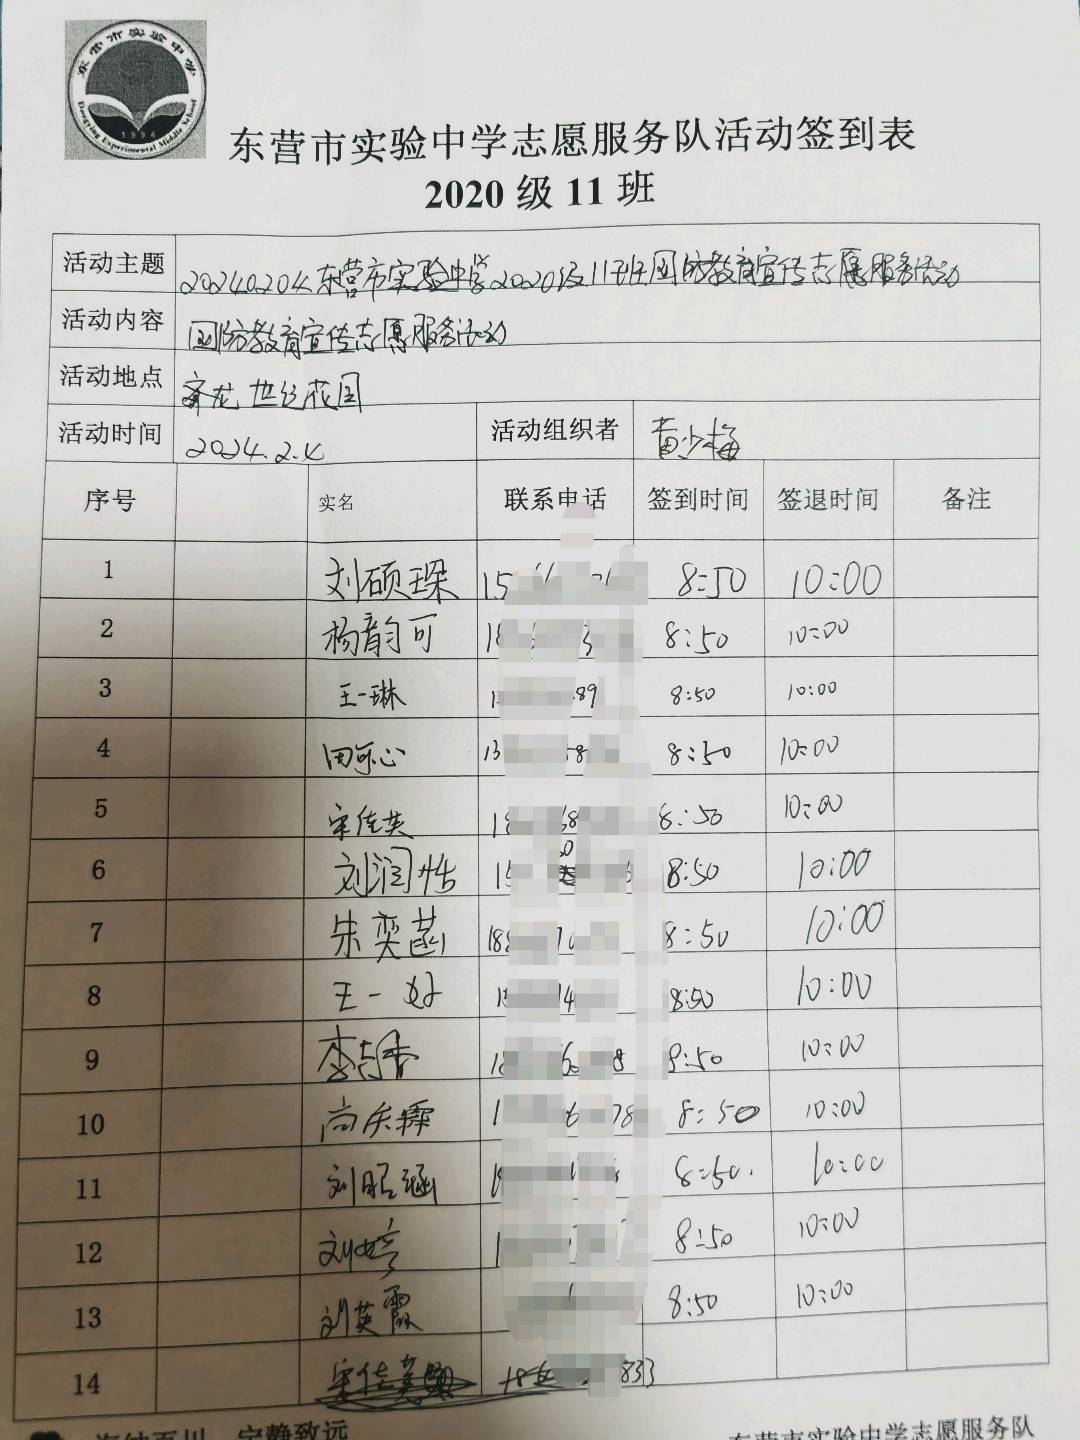 东营市实验中学
Dongying Experimental Middle School
1994
东营市实验中学志愿服务队活动签到表
2020 级 11 班
活动主题 20240204东营市实验中学2020级11班国防教育宣传志愿服务活动
活动内容 国防教育宣传志愿服务活动
活动地点 众龙世纪花园
活动时间 2024.2.4 活动组织者 黄少梅
序号 实名 联系电话 签到时间 签退时间 备注
1 刘硕琛 15 8:50 10:00
2 杨韵可 18 8:50 10:00
3 王一琳 1 89 8:50 10:00
4 田可心 13 58 8:50 10:00
5 宋佳英 18 68 8:50 10:00
6 刘润恬 15 8:50 10:00
7 朱奕菡 188 70 8:50 10:00
8 王一好 14 8:50 10:00
9 18 8 8:50 10:00
10 尚庆霖 1 6 78 8:50 10:00
11 刘昭涵 8:50 10:00
12 刘婷 8:50 10:00
13 刘英霞 8:50 10:00
14 宋佳英 18 833
海纳百川 宁静致远
东营市实验中学志愿服务队